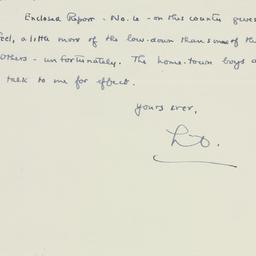 Enclosed Report - No. 6 - on this county gives
feel, a little more of the low-down than some of the
others - unfortunately. The home-town boys
talk to me for effect.
Yours ever,